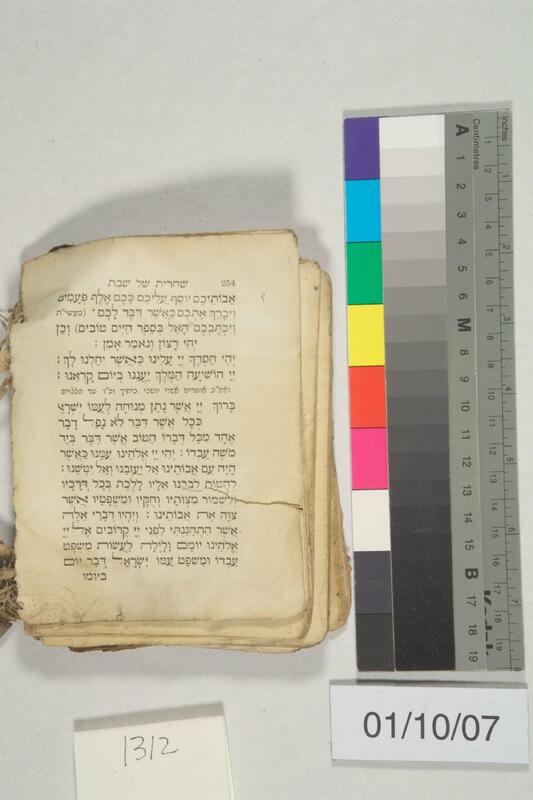 254 שחרית של שבת
אֲבוֹתֵיכֶם יוֹסֵף עֲלֵיכֶם כָּכֶם אֶלֶף פְּעָמִים
וִיבָרֵךְ אֶתְכֶם כַּאֲשֶׁר דִּבֶּר לָכֶם · (בעשי״ת
וְיִכְתָּבְכֶם הָאֵל בְּסֵפֶר חַיִּים טוֹבִים) וְכֵן
יְהִי רָצוֹן וְנֹאמַר אָמֵן :
יְהִי חַסְדְּךָ יְיָ עָלֵינוּ כַּאֲשֶׁר יִחַלְנוּ לָךְ :
יְיָ הוֹשִׁיעָה הַמֶּלֶךְ יַעֲנֵנוּ בְיוֹם קָרְאֵנוּ :
ואח״כ אומרים אשרי יושבי ביתיך וכ״ו עד הללויה
בָּרוּךְ יְיָ אֲשֶׁר נָתַן מְנוּחָה לְעַמּוֹ יִשְׂרָאֵל
כְּכֹל אֲשֶׁר דִּבֵּר לֹא נָפַל דָּבָר
אֶחָד מִכֹּל דְּבָרוֹ הַטּוֹב אֲשֶׁר דִּבֶּר בְּיַד
מֹשֶׁה עַבְדּוֹ : יְהִי יְיָ אֱלֹהֵינוּ עִמָּנוּ כַּאֲשֶׁר
הָיָה עִם אֲבוֹתֵינוּ אַל יַעַזְבֵנוּ וְאַל יִטְּשֵׁנוּ :
לְהַטּוֹת לְבָבֵנוּ אֵלָיו לָלֶכֶת בְּכָל דְּרָכָיו
וְלִשְׁמוֹר מִצְוֹתָיו וְחֻקָּיו וּמִשְׁפָּטָיו אֲשֶׁר
צִוָּה אֶת אֲבוֹתֵינוּ : וְיִהְיוּ דְבָרַי אֵלֶּה
אֲשֶׁר הִתְחַנַּנְתִּי לִפְנֵי יְיָ קְרוֹבִים אֶל יְיָ
אֱלֹהֵינוּ יוֹמָם וָלָיְלָה לַעֲשׂוֹת מִשְׁפַּט
עַבְדּוֹ וּמִשְׁפַּט עַמּוֹ יִשְׂרָאֵל דְּבַר יוֹם
בְּיוֹמוֹ
Inches
Centimetres
A 1 2 3 4 5 6 M 8 9 10 11 12 13 14 15 B 17 18 19
1 2 3 4 5 6 7 8
Kodak
1312
01/10/07